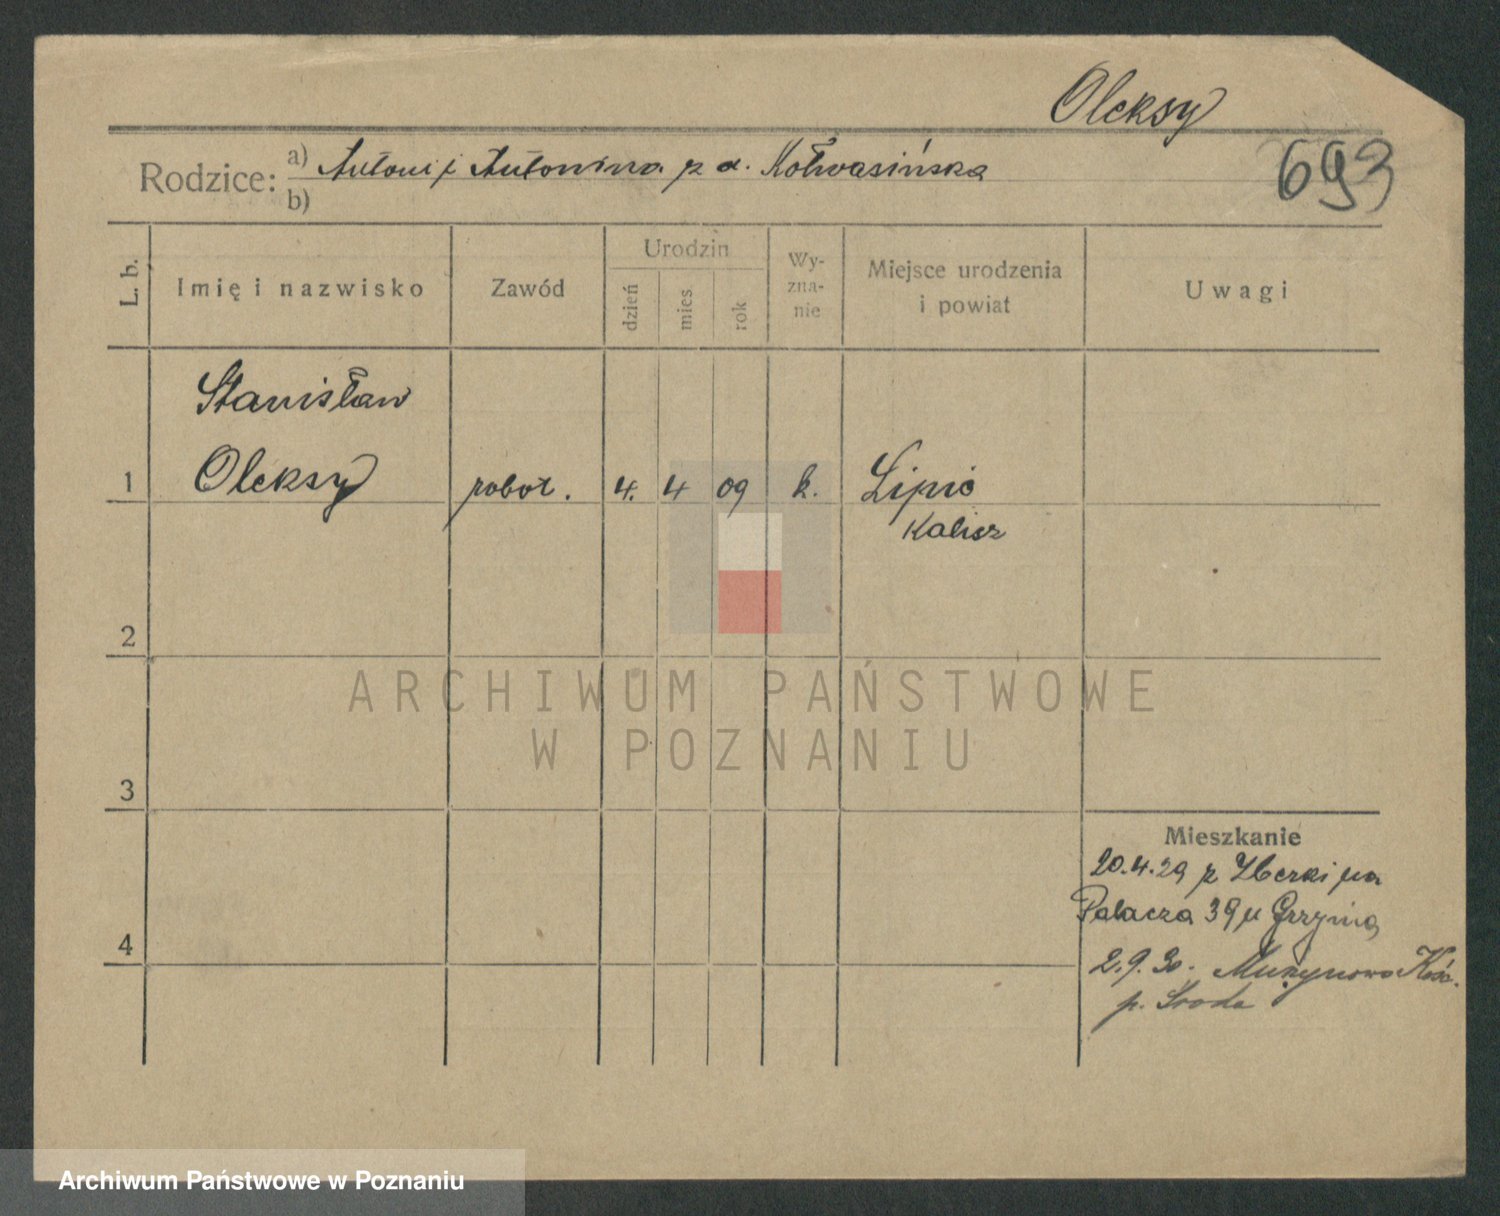 Oleksy
693
Rodzice: a) Antoni i Antonina z d. Kołwasińska
b)
L. b.
Imię i nazwisko
Zawód
Urodzin
dzień
mies
rok
Wy-
zna-
nie
Miejsce urodzenia
i powiat
Uwagi
Stanisław
1 Oleksy robot. 4. 4 09 k. Lipie
Kalisz
2
ARCHIWUM PAŃSTWOWE
W POZNANIU
3
Mieszkanie
20.4.29 z na
Palacza 39 u
4
2.9.30. Murzynowo Kość.
p. Środa
Archiwum Państwowe w Poznaniu